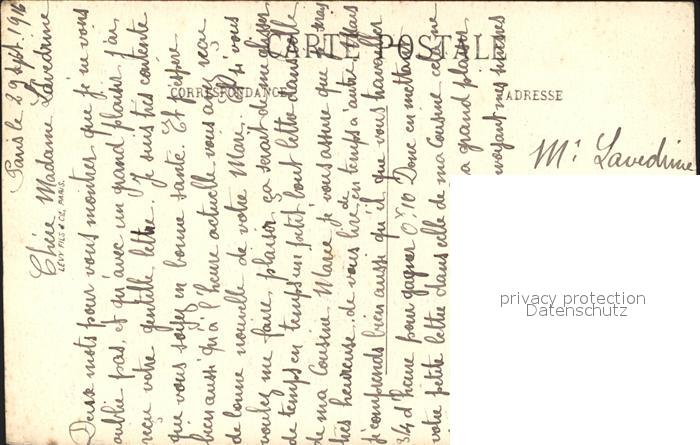 CARTE POSTALE
CORRESPONDANCE
ADRESSE
LEVY FILS & Cie, PARIS.
Mr Lavedrine
Paris le 29 Sept. 1916
Chère Madame Lavedrine
Deux mots pour vous montrer que je ne vous
oublie pas, et qu'avec un grand plaisir j'ai
reçu votre gentille lettre. Je suis très contente
que vous soyez en bonne santé. Et j'espère
bien aussi qu'à l'heure actuelle vous avez reçu
de bonne nouvelle de votre Mari. Et si vous
voulez me faire plaisir, ça serait de me glisser
de temps en temps un petit bout lettre dans celle
de ma Cousine Marie je vous assure que je serais
très heureuse de vous lire de temps à autre. Mais
j'comprends bien aussi qu'il de que vous travailler
3/4 d'heure pour gagner 0f,10 Donc en mettant
votre petite lettre dans celle de ma Cousine cela me
a grand plaisir
voyant mes sincères
privacy protection
Datenschutz